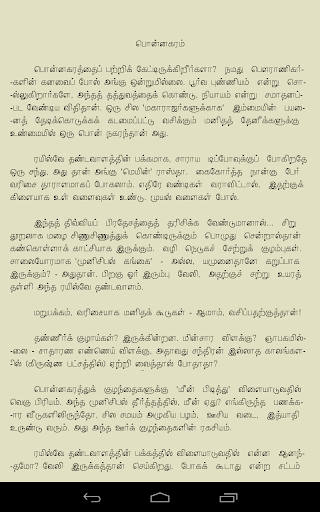 பொன்னகரம்
பொன்னகரத்தைப் பற்றிக் கேட்டிருக்கிறீர்களா? நமது பௌராணிகர்-
-களின் கனவைப் போல் அங்கு ஒன்றுமில்லை. பூர்வ புண்ணியம் என்று சொ-
-ல்லுகிறார்களே, அந்தத் தத்துவத்தைக் கொண்டு, நியாயம் என்று சமாதனப்-
-பட வேண்டிய விதிதான். ஒரு சில 'மகாராஜர்களுக்காக' இம்மையின் பய-
-னைத் தேடிக்கொடுக்கக் கடமைப்பட்டு வசிக்கும் மனிதத் தேனீக்களுக்கு
உண்மையில் ஒரு பொன் நகரந்தான் அது.
ரயில்வே தண்டவாளத்தின் பக்கமாக, சாராய டிப்போவுக்குப் போகிறதே
ஒரு சந்து, அது தான் அங்கு 'மெயின்' ராஸ்தா. கைகோர்த்த நான்கு பேர்
வரிசை தாராளமாகப் போகலாம். எதிரே வண்டிகள் வராவிட்டால். இதற்குக்
கிளையாக உள் வளைவுகள் உண்டு. முயல் வளைகள் போல்.
இந்தத் திவ்வியப் பிரதேசத்தைத் தரிசிக்க வேண்டுமானால்... சிறு
தூறலாக மழை சிணுசிணுத்துக் கொண்டிருக்கும் பொழுது சென்றால்தான்
கண்கொள்ளாக் காட்சியாக இருக்கும். வழி நெடுகச் சேற்றுக் குழம்புகள்.
சாலையோரமாக 'முனிசிபல் கங்கை' - அல்ல, யமுனைதானே கறுப்பாக
இருக்கும்? - அதுதான். பிறகு ஓர் இரும்பு வேலி, அதற்குச் சற்று உயரத்
தள்ளி அந்த ரயில்வே தண்டவாளம்.
மறுபக்கம், வரிசையாக மனிதக் கூடுகள் - ஆமாம், வசிப்பதற்குத்தான்!
தண்ணீர்க் குழாய்கள்? இருக்கின்றன. மின்சார விளக்கு? ஞாபகமில்-
-லை - சாதாரண எண்ணெய் விளக்கு, அதாவது சந்திரன் இல்லாத காலங்களை-
-ில் (கிருஷ்ண பட்சத்தில்) ஏற்றி வைத்தால் போதாதா?
பொன்னகரத்துக் குழந்தைகளுக்கு 'மீன் பிடித்து' விளையாடுவதில்
வெகு பிரியம். அந்த முனிசிபல் தீர்த்தத்தில், மீன் ஏது? எங்கிருந்த பணக்க-
-ார வீடுகளிலிருந்தோ, சில சமயம் அழுகிய பழம், ஊசிய வடை, இத்யாதி
உருண்டு வரும். அது அந்த ஊர்க் குழந்தைகளின் ரகசியம்.
ரயில்வே தண்டவாளத்தின் பக்கத்தில் விளையாடுவதில் என்ன ஆனந்-
-தமோ? வேலி இருக்கத்தான் செய்கிறது. போகக் கூடாது என்ற சட்டம்